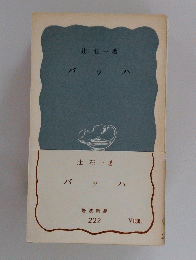 辻 荘一著
バッハ
辻 荘一著
バッハ
岩波新書
222